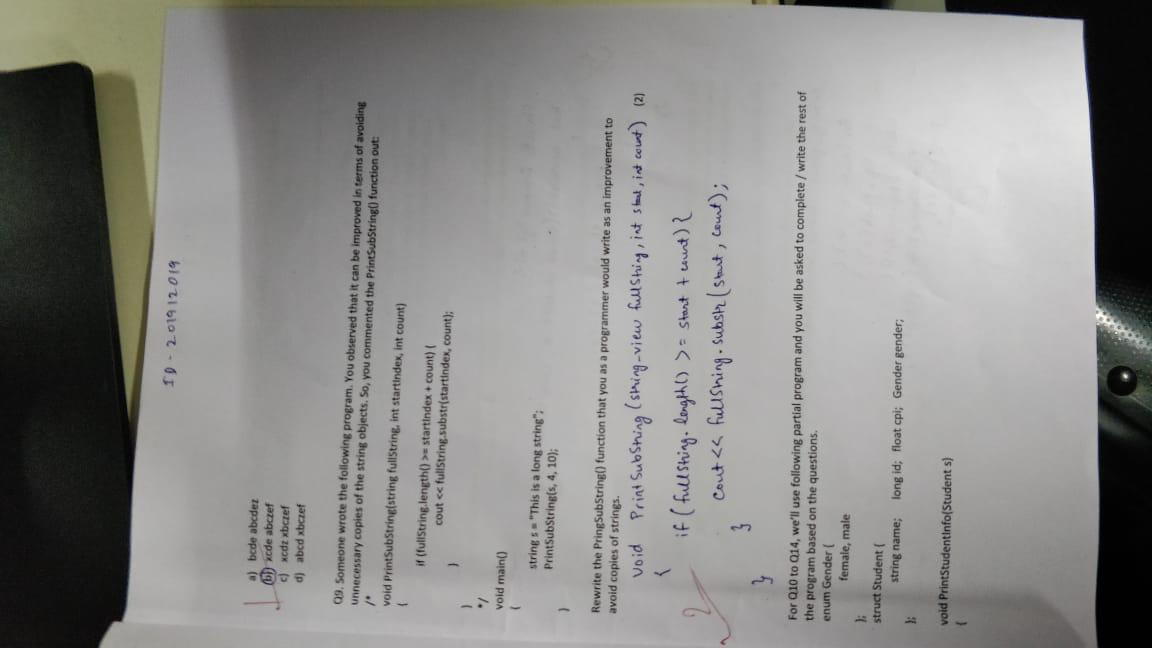 ID - 201912019
a) bcde abcdez
b) xcde abczef
c) xcdz xbczef
d) abcd xbczef
Q9. Someone wrote the following program. You observed that it can be improved in terms of avoiding
unnecessary copies of the string objects. So, you commented the PrintSubString() function out:
/*
void PrintSubString(string fullString, int startIndex, int count)
{
if (fullString.length() >= startIndex + count) {
cout << fullString.substr(startIndex, count);
}
}
*/
void main()
{
string s = "This is a long string";
PrintSubString(s, 4, 10);
}
Rewrite the PringSubString() function that you as a programmer would write as an improvement to
avoid copies of strings.
void PrintSubString (string_view fullString, int start, int count) (2)
{
if (fullString.length() >= start + count) {
2
cout << fullString.substr(start, count);
}
}
For Q10 to Q14, we'll use following partial program and you will be asked to complete / write the rest of
the program based on the questions.
enum Gender {
female, male
};
struct Student {
string name; long id; float cpi; Gender gender;
};
void PrintStudentInfo(Student s)
{